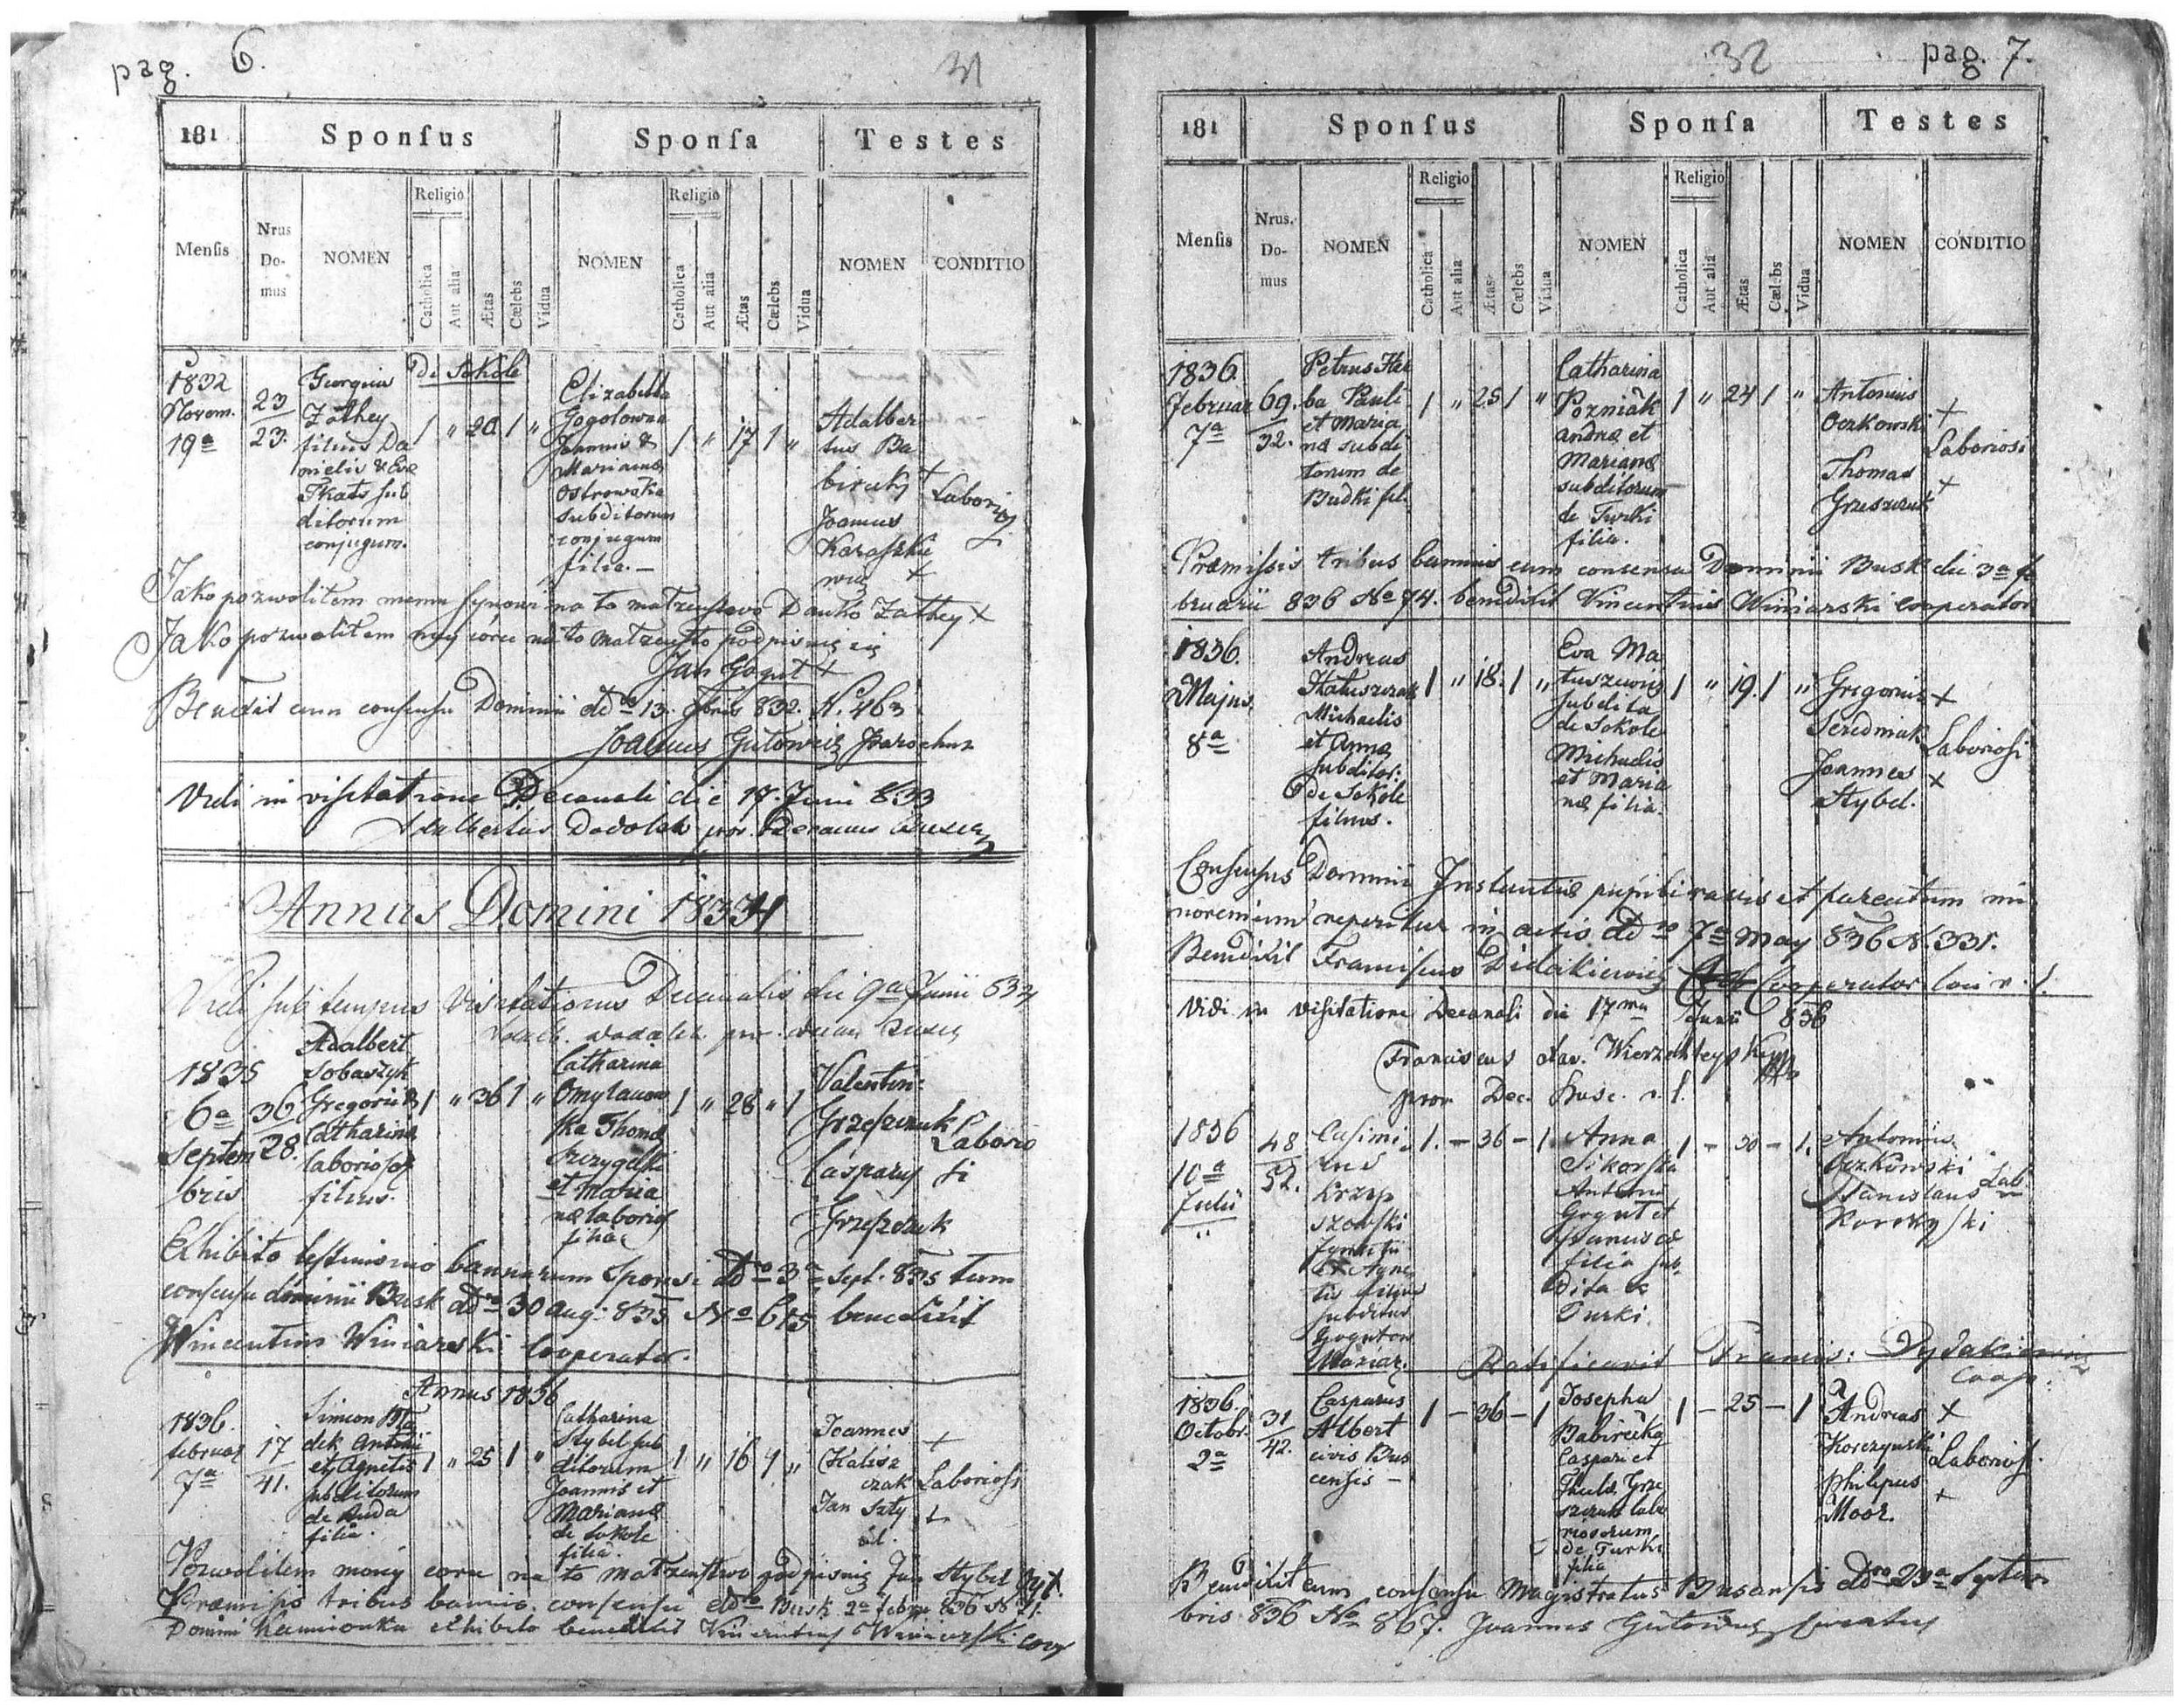 pag. 6.
31
181
Sponſus
Sponſa
Testes
Menſis
Nrus Do- mus
NOMEN
Religio
Catholica
Aut alia
Ætas
Cœlebs
Vidua
NOMEN
Religio
Catholica
Aut alia
Ætas
Cœlebs
Vidua
NOMEN
CONDITIO
de Sokole
1832
Novem.
19a
23
23.
Georgius
Zathey
filius Da
nielis & Evæ
ditorum
conjugum.
1 " 20 1 "
Elizabetha
Gogotowna
Joannis &
Mariannæ
Ostrowska
subditorum
conjugum
filia.
1 " 17 1 "
Adalber
tus Ba
bircky +
Joannes
Karaszkie
wicz +
Laborioſ
Jako pozwolitem memu synowi na to matzenstwo Danko Zathey +
Jako pozwolitem mey corce na to matzenstwo podpisuię się
Jan Gogut +
Benedixit cum consensu Dominii ddo 13. 832. N. 463
Joannes Gutowicz Parochus
Vidi in visitatione Decanali die 17. Juni 833
Adalbertus Dodolak Decanus Buscen
Annus Domini 1834
Vidi sub tempus Visitationis Decanalis die 9a Junii 834
1835
6a
Septem
bris
36
28.
Adalbert
Sobaszyk
Gregorii &
Catharinæ
laboriosor
filius.
1 " 36 1 "
Catharina
Omylanow
ska Thomæ
Szczygelski
et Maria
næ laborios
filia
1 " 28 " 1
Valentin:
Grzeszczuk
Caspary
Grzeszczuk
Laborio
si
Exhibito testimonio bannorum Sponsi ddo 3a Sept. 835 tum
consensu dominii Busk ddo 30 Aug. 835 No 675 benedixit
Wincentius Winiarski Cooperator.
Annus 1836
1836.
februar
7a
17
41.
Simeon
dek Antonii
et Agnetis
subditorum
de Ruda
filia.
1 " 25 1 "
Catharina
Stybel sub
ditorum
Joannis et
Mariannæ
de Sokole
filia.
1 " 16 1 "
Joannes +
Kalisz
czak
Jan Szty +
el.
Laboriosi
Pozwolitem moiey corce na to matzenstwo podpisuię Jan Stybel
Præmissis tribus bannis consensu ddo Busk 2a febru 836 N 71.
Domini Kamionka exhibito benedixit Vincentius Winiarski Coop
32
pag. 7.
181
Sponſus
Sponſa
Testes
Menſis
Nrus. Do- mus
NOMEN
Religio
Catholica
Aut alia
Ætas
Cœlebs
Vidua
NOMEN
Religio
Catholica
Aut alia
Ætas
Cœlebs
Vidua
NOMEN
CONDITIO
1836.
Februar
7a
69.
32.
Petrus Her
ba Pauli
et Maria
næ subdi
torum de
Budki fil.
1 " 25 1 "
Catharina
Pozniak
Andræ et
Mariannæ
subditorum
de Turki
filia.
1 " 24 1 "
Antonius
Oczkowski +
Thomas
Grzeszczuk +
Laboriosi
Præmissis tribus bannis cum consensu Dominii Busk die 3a fe
bruarii 836 No 74. benedixit Vincentius Winiarski Cooperator
1836.
Majus
8a
Andreas
Michaelis
et Annæ
subditor:
de Sokole
filius.
1 " 18. 1 "
Eva Ma
tuszewicz
subdita
de Sokole
Michaelis
et Maria
næ filia.
1 " 19. 1 "
Gregorius +
Seredniak
Joannes +
Stybel.
Laboriosi
Consensus Dominii Instantiæ pupillaris et parentum mi
norennium reperitur in actis ddo 7a May 836 N. 331.
Benedixit Franciscus Didakiewicz Cooperator loci
Vidi in visitatione Decanali die 17ma Junii 836
Franciscus Wierzchleyski
Dec. Busc.
1836
10a
Julii
48
52.
Casimi
rus
Krzysz
szowski
Ignatii
et Agne
tis filius
subditus
1. – 36 – 1
Anna
Sikorska
Antonii
Gogut et
filia sub
dita de
Turki.
1 – 30 – 1.
Antonius
Oczkowski
Stanislaus
Korczyski
Lab
Ratificavit Francis: Dydakiewicz
Coop.
1836.
Octobr.
2a
31
42.
Casparus
Albert
civis Bus
censis –
1 – 36 – 1
Josepha
Babirecka
Caspari et
Theclæ Grze
szczuk labo
riosorum
de Turki
filia
1 – 25 – 1
Andreas +
Korczynski
Philipus +
Moor.
Laborios.
Benedixit cum consensu Magistratus Buscensis ddo 23a Septem
bris 836 No 867. Joannes Gutowicz Curatus